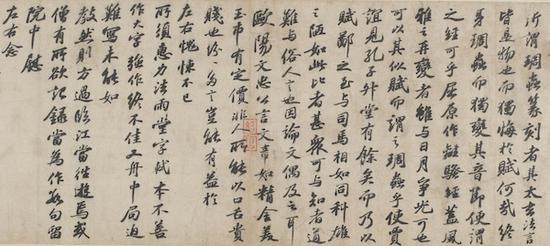 所謂琱蟲篆刻者其太玄法言
皆是物也而獨悔於賦何哉終
身琱蟲而獨變其音節便謂
之經可乎屈原作離騷經蓋風
雅之再變者雖與日月爭光可也
可以其似賦而謂之琱蟲乎使賈
誼見孔子升堂有餘矣而乃以
賦鄙之至與司馬相如同科雄
之陋如此比者甚衆可與知者道
難與俗人言也因論文偶及之耳
歐陽文忠公言文章如精金美
玉市有定價非人所能以口舌貴
賤也紛紛多言豈能有益於
左右愧悚不已
所須惠力法雨堂字軾本不善
作大字強作終不佳又舟中局迫
難寫未能如
教然則方過臨江當往遊焉或
僧有所欲記錄當爲作數句留
院中慰
左右念